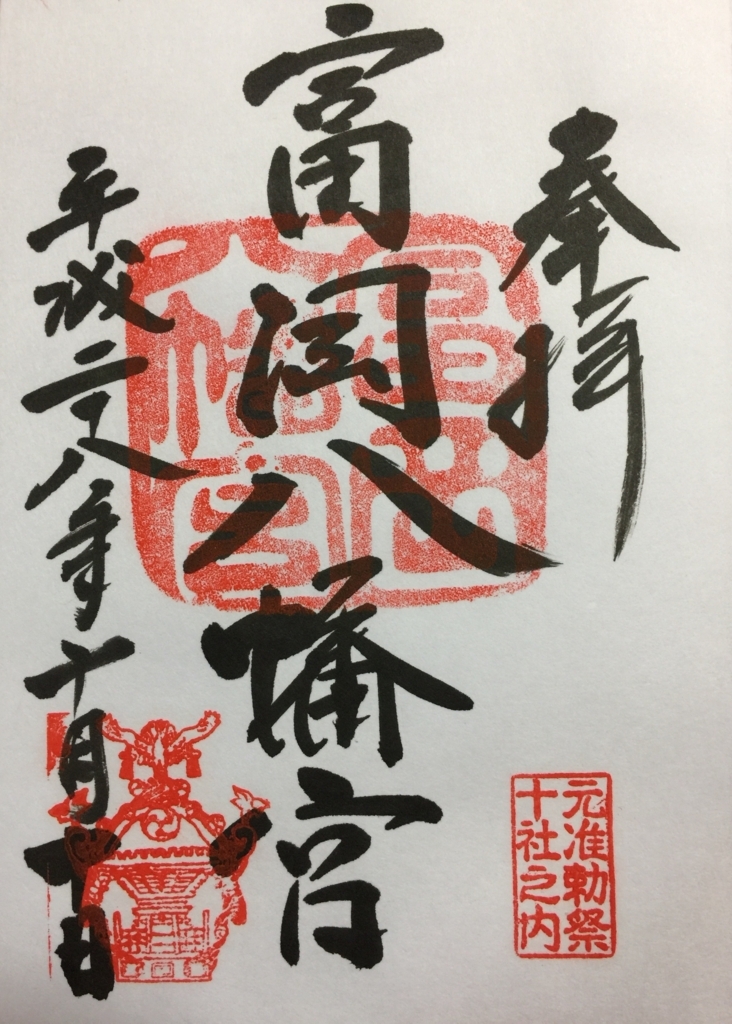 奉拝
元准勅祭
十社之内
富岡八幡宮
富岡
八幡宮
平成二十八年十月十日